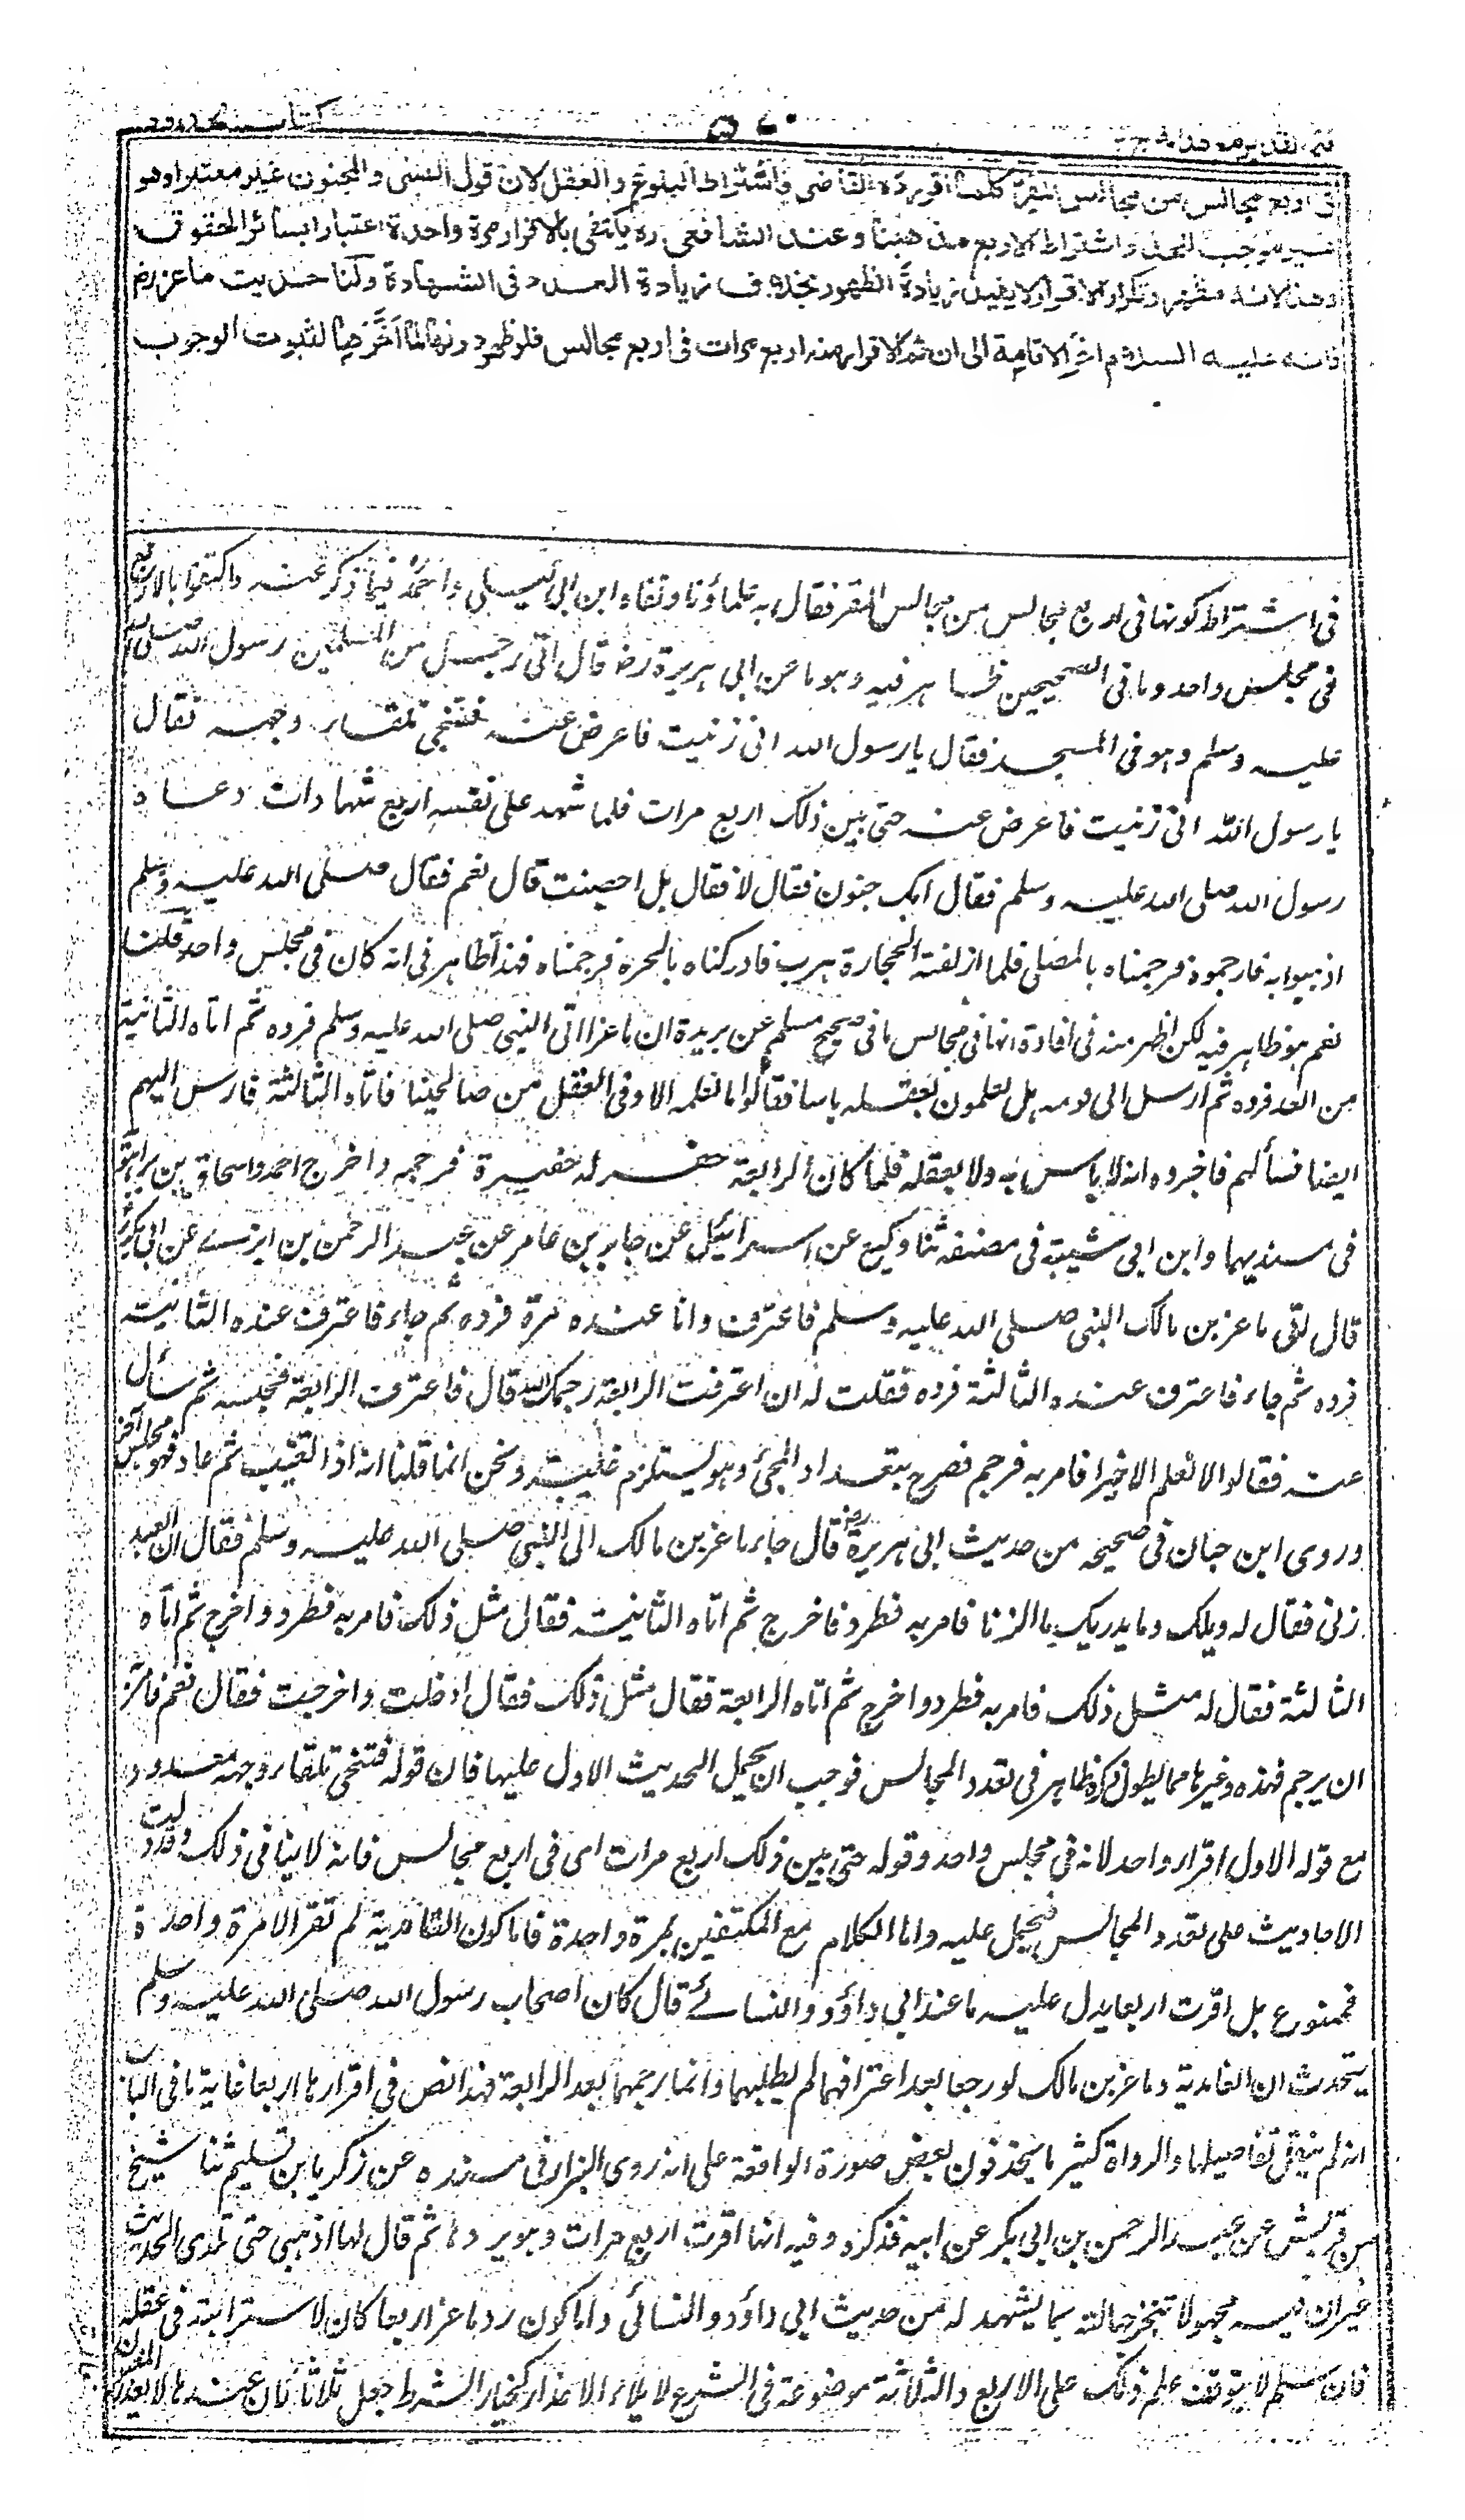 فتح القدير مع هداية
كتاب الحدود
فى اربع مجالس من مجالس المقر كلما اقر رده القاضى فاشتراط البلوغ والعقل لان قول الصبى والمجنون غير معتبر اوهو
غير موجب للحد واشتراط الاربع مذهبنا وعند الشافعى ره يكتفى بالاقرار مرة واحدة اعتبارا بسائر الحقوق
وهذا لانه مظهر وتكرار الاقرار لا يفيد زيادة الظهور بخلاف زيادة العدد فى الشهادة ولنا حديث ماعز رض
فانه عليه السلام اخر الاقامة الى ان تم الاقرار منه اربع مرات فى اربع مجالس فلو ظهر دونها لما اخرها لثبوت الوجوب
فى اشتراط كونها فى اربع مجالس من مجالس المقر فقال به علماؤنا ونفاه ابن ابى ليلى واحمد فيما ذكر عنه واكتفوا بالاربع
فى مجلس واحد وما فى الصحيحين ظاهر فيه وهو ما عن ابى هريرة رض قال اتى رجل من المسلمين رسول الله صلى الله
عليه وسلم وهو فى المسجد فقال يا رسول الله انى زنيت فاعرض عنه فتنحى تلقاء وجهه فقال
يا رسول الله انى زنيت فاعرض عنه حتى بين ذلك اربع مرات فلما شهد على نفسه اربع شهادات دعاه
رسول الله صلى الله عليه وسلم فقال ابك جنون فقال لا فقال هل احصنت قال نعم فقال صلى الله عليه وسلم
اذهبوا به فارجموه فرجمناه بالمصلى فلما ازلفته الحجارة هرب فادركناه بالحرة فرجمناه فهذا ظاهر فى انه كان فى مجلس واحد قلنا
نعم هو ظاهر فيه لكن اظهر منه فى افادة انها فى مجالس ما فى صحيح مسلم عن بريدة ان ماعزا اتى النبى صلى الله عليه وسلم فرده ثم اتاه الثانية
من الغد فرده ثم ارسل الى قومه هل تعلمون بعقله باسا فقالوا ما نعلمه الا وفى العقل من صالحينا فاتاه الثالثة فارسل اليهم
ايضا فسألهم فاخبروه انه لا باس به ولا بعقله فلما كان الرابعة حفر له حفيرة فرجمه واخرج احمد واسحاق بن راهويه
فى مسنديهما وابن ابى شيبة فى مصنفه ثنا وكيع عن اسرائيل عن جابر بن عامر عن عبد الرحمن بن ابزى عن ابى بكر
قال لقى ماعز بن مالك النبى صلى الله عليه وسلم فاعترف وانا عنده مرة فرده ثم جاء فاعترف عنده الثانية
فرده ثم جاء فاعترف عنده الثالثة فرده فقلت له ان اعترفت الرابعة رجمك الله قال فاعترف الرابعة فحبسه ثم سأل
عنه فقالوا لا نعلم الا خيرا فامر به فرجم فصرح بتعداد المجئ وهو يستلزم غيبته ونحن انما قلنا انه اذا تغيب ثم عاد فهو مجلس آخر
وروى ابن حبان فى صحيحه من حديث ابى هريرة رض قال جاء ماعز بن مالك الى النبى صلى الله عليه وسلم فقال ان العبد
زنى فقال له ويلك وما يدريك ما الزنا فامر به فطرد فاخرج ثم اتاه الثانية فقال مثل ذلك فامر به فطرد واخرج ثم اتاه
الثالثة فقال له مثل ذلك فامر به فطرد واخرج ثم اتاه الرابعة فقال مثل ذلك فقال ادخلت واخرجت فقال نعم فامر
ان يرجم فهذه وغيرها مما يطول ذكره ظاهر فى تعدد المجالس فوجب ان يحمل الحديث الاول عليها فان قوله فتنحى تلقاء وجهه معدود
مع قوله الاول اقرار واحد لانه فى مجلس واحد وقوله حتى بين ذلك اربع مرات اى فى اربع مجالس فانه لا ينافى ذلك وقد دلت
الاحاديث على تعدد المجالس فيحمل عليه واما الكلام مع المكتفين بمرة واحدة فاما كون الغامدية لم تقر الا مرة واحدة
فممنوع بل اقرت اربعا يدل عليه ما عند ابى داؤد والنسائے قال كان اصحاب رسول الله صلى الله عليه وسلم
يتحدث ان الغامدية وماعز بن مالك لو رجعا بعد اعترافهما لم يطلبهما وانما رجمهما بعد الرابعة فهذا نص فى اقرارها اربعا غاية ما فى الباب
انه لم ينقل تفاصيلها والرواة كثير ما يحذفون بعض صورة الواقعة على انه روى البزار فى مسنده عن زكريا بن سليم ثنا شيخ
من قريش عن عبد الرحمن بن ابى بكر عن ابيه فذكره وفيه انها اقرت اربع مرات وهو يردها ثم قال لها اذهبى حتى تلدى الحديث
غير ان فيه مجهولا تنجبر جهالته بما يشهد له من حديث ابى داؤد والنسائى واما كون رد ماعز اربعا كان لاسترابته فى عقله
فان سلم لا يتوقف علم ذلك على الاربع والثلاثة موضوعة فى الشرع لابلاء الاعذار كخيار الشرط جعل ثلاثا لان عندها لا يعذر المغبون